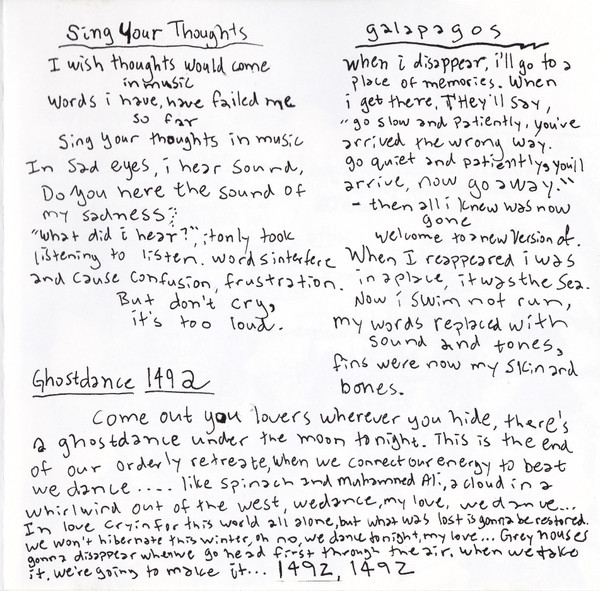 Sing Your Thoughts
I wish thoughts would come
in music
words i have, have failed me
so far
Sing your thoughts in music
In Sad eyes, i hear sound,
Do you here the sound of
my sadness?
"what did i hear?", it only took
listening to listen. words interfere
and cause confusion, frustration.
But don't cry,
it's too loud.
galapagos
when i disappear, i'll go to a
place of memories. When
i get there, THey'll say,
"go slow and patiently, you've
arrived the wrong way.
go quiet and patiently, you'll
arrive, now go away."
- then all i knew was now
gone
welcome to a new version of.
When I reappeared i was
in a place, it was the sea.
Now i swim not run,
my words replaced with
sound and tones,
fins were now my skin and
bones.
Ghostdance 1492
Come out you lovers wherever you hide, there's
a ghostdance under the moon tonight. This is the end
of our orderly retreate, when we connect our energy to beat
we dance .... like spinach and Muhammed Ali, a cloud in a
whirlwird out of the west, we dance, my love, we dance...
In love cryin for this world all alone, but what was lost is gonna be restored.
we won't hibernate this winter, oh no, we dance tonight, my love... Grey houses
gonna disappear when we go head first through the air. when we take
it, we're going to make it... 1492, 1492